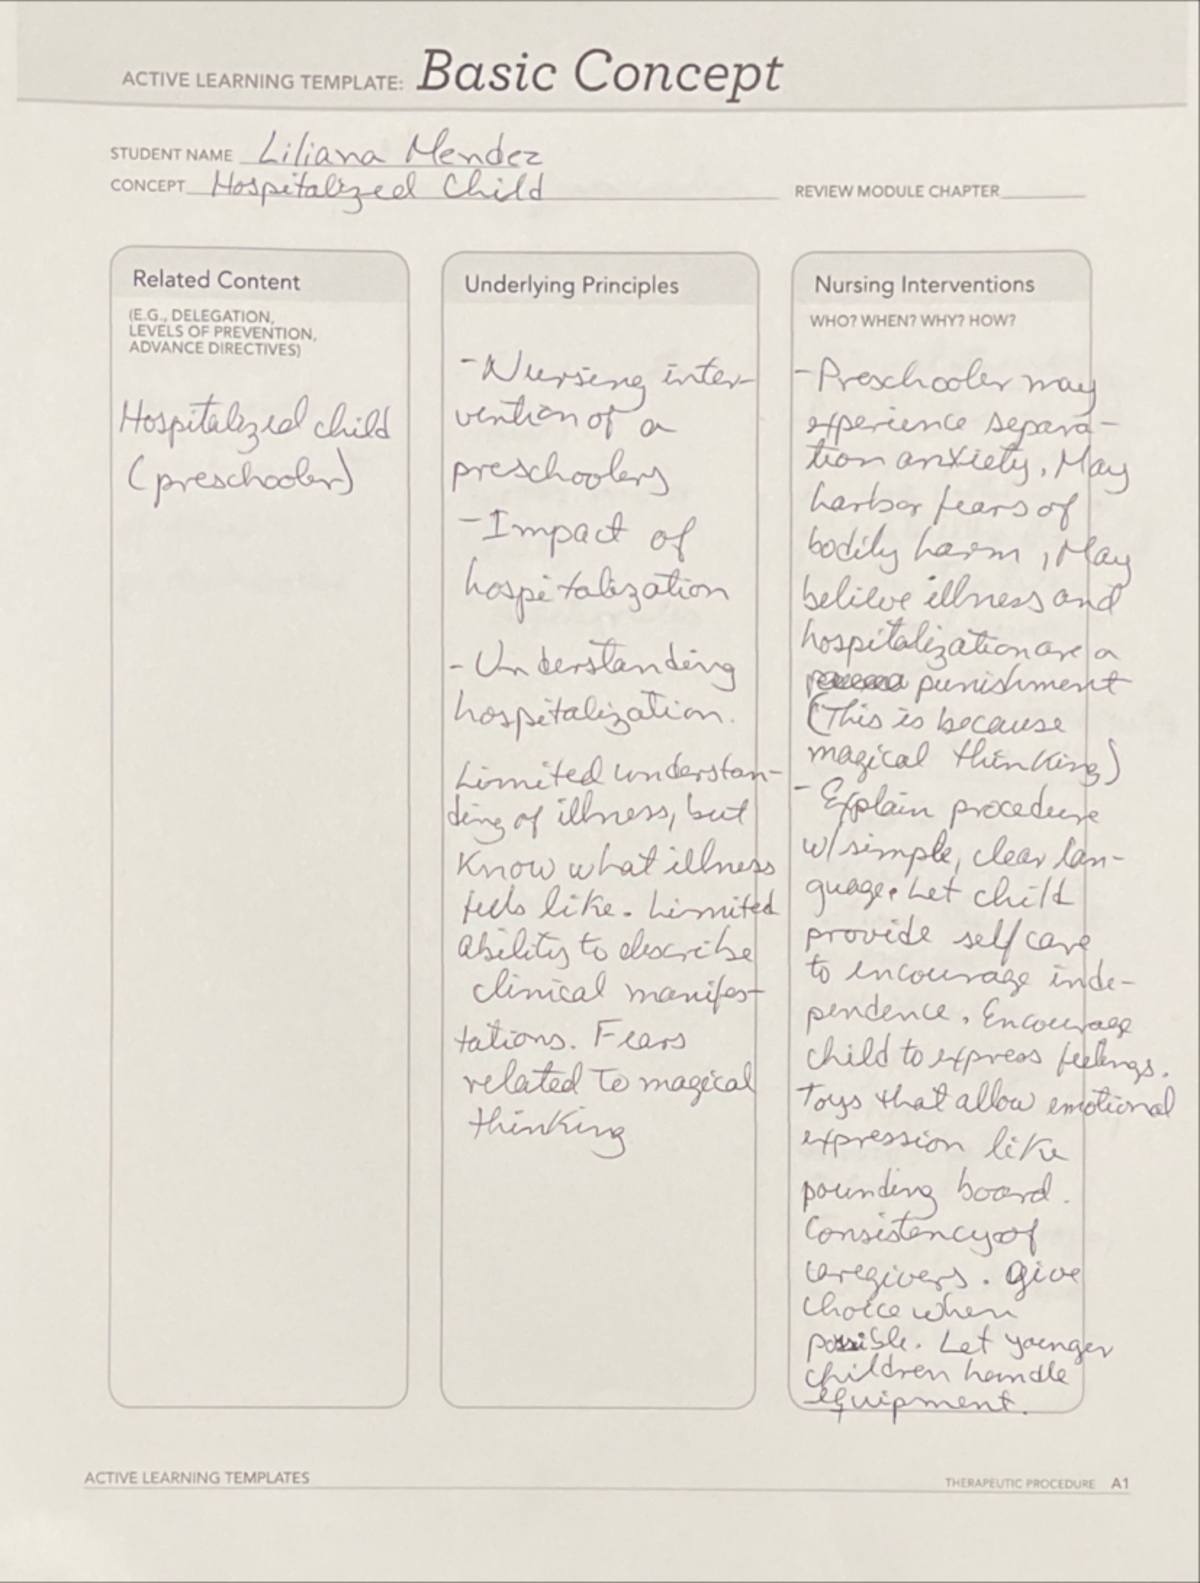 ACTIVE LEARNING TEMPLATE: Basic Concept
STUDENT NAME Liliana Mendez
CONCEPT Hospitalized Child
REVIEW MODULE CHAPTER
Related Content
(E.G., DELEGATION,
LEVELS OF PREVENTION,
ADVANCE DIRECTIVES)
Hospitalized child
(preschooler)
Underlying Principles
- Nursing inter-
vention of a
preschoolers
- Impact of
hospitalization
- Understanding
hospitalization.
Limited understan-
ding of illness, but
Know what illness
feels like. Limited
ability to describe
clinical manifes-
tations. Fears
related to magical
thinking
Nursing Interventions
WHO? WHEN? WHY? HOW?
- Preschooler may
experience separa-
tion anxiety, May
harbor fears of
bodily harm, May
believe illness and
hospitalization are a
punishment
(This is because
magical thinking)
- Explain procedure
w/ simple, clear lan-
guage. Let child
provide self care
to encourage inde-
pendence. Encourage
child to express feelings.
Toys that allow emotional
expression like
pounding board.
Consistency of
caregivers. Give
choice when
possible. Let younger
children handle
equipment.
ACTIVE LEARNING TEMPLATES
THERAPEUTIC PROCEDURE A1